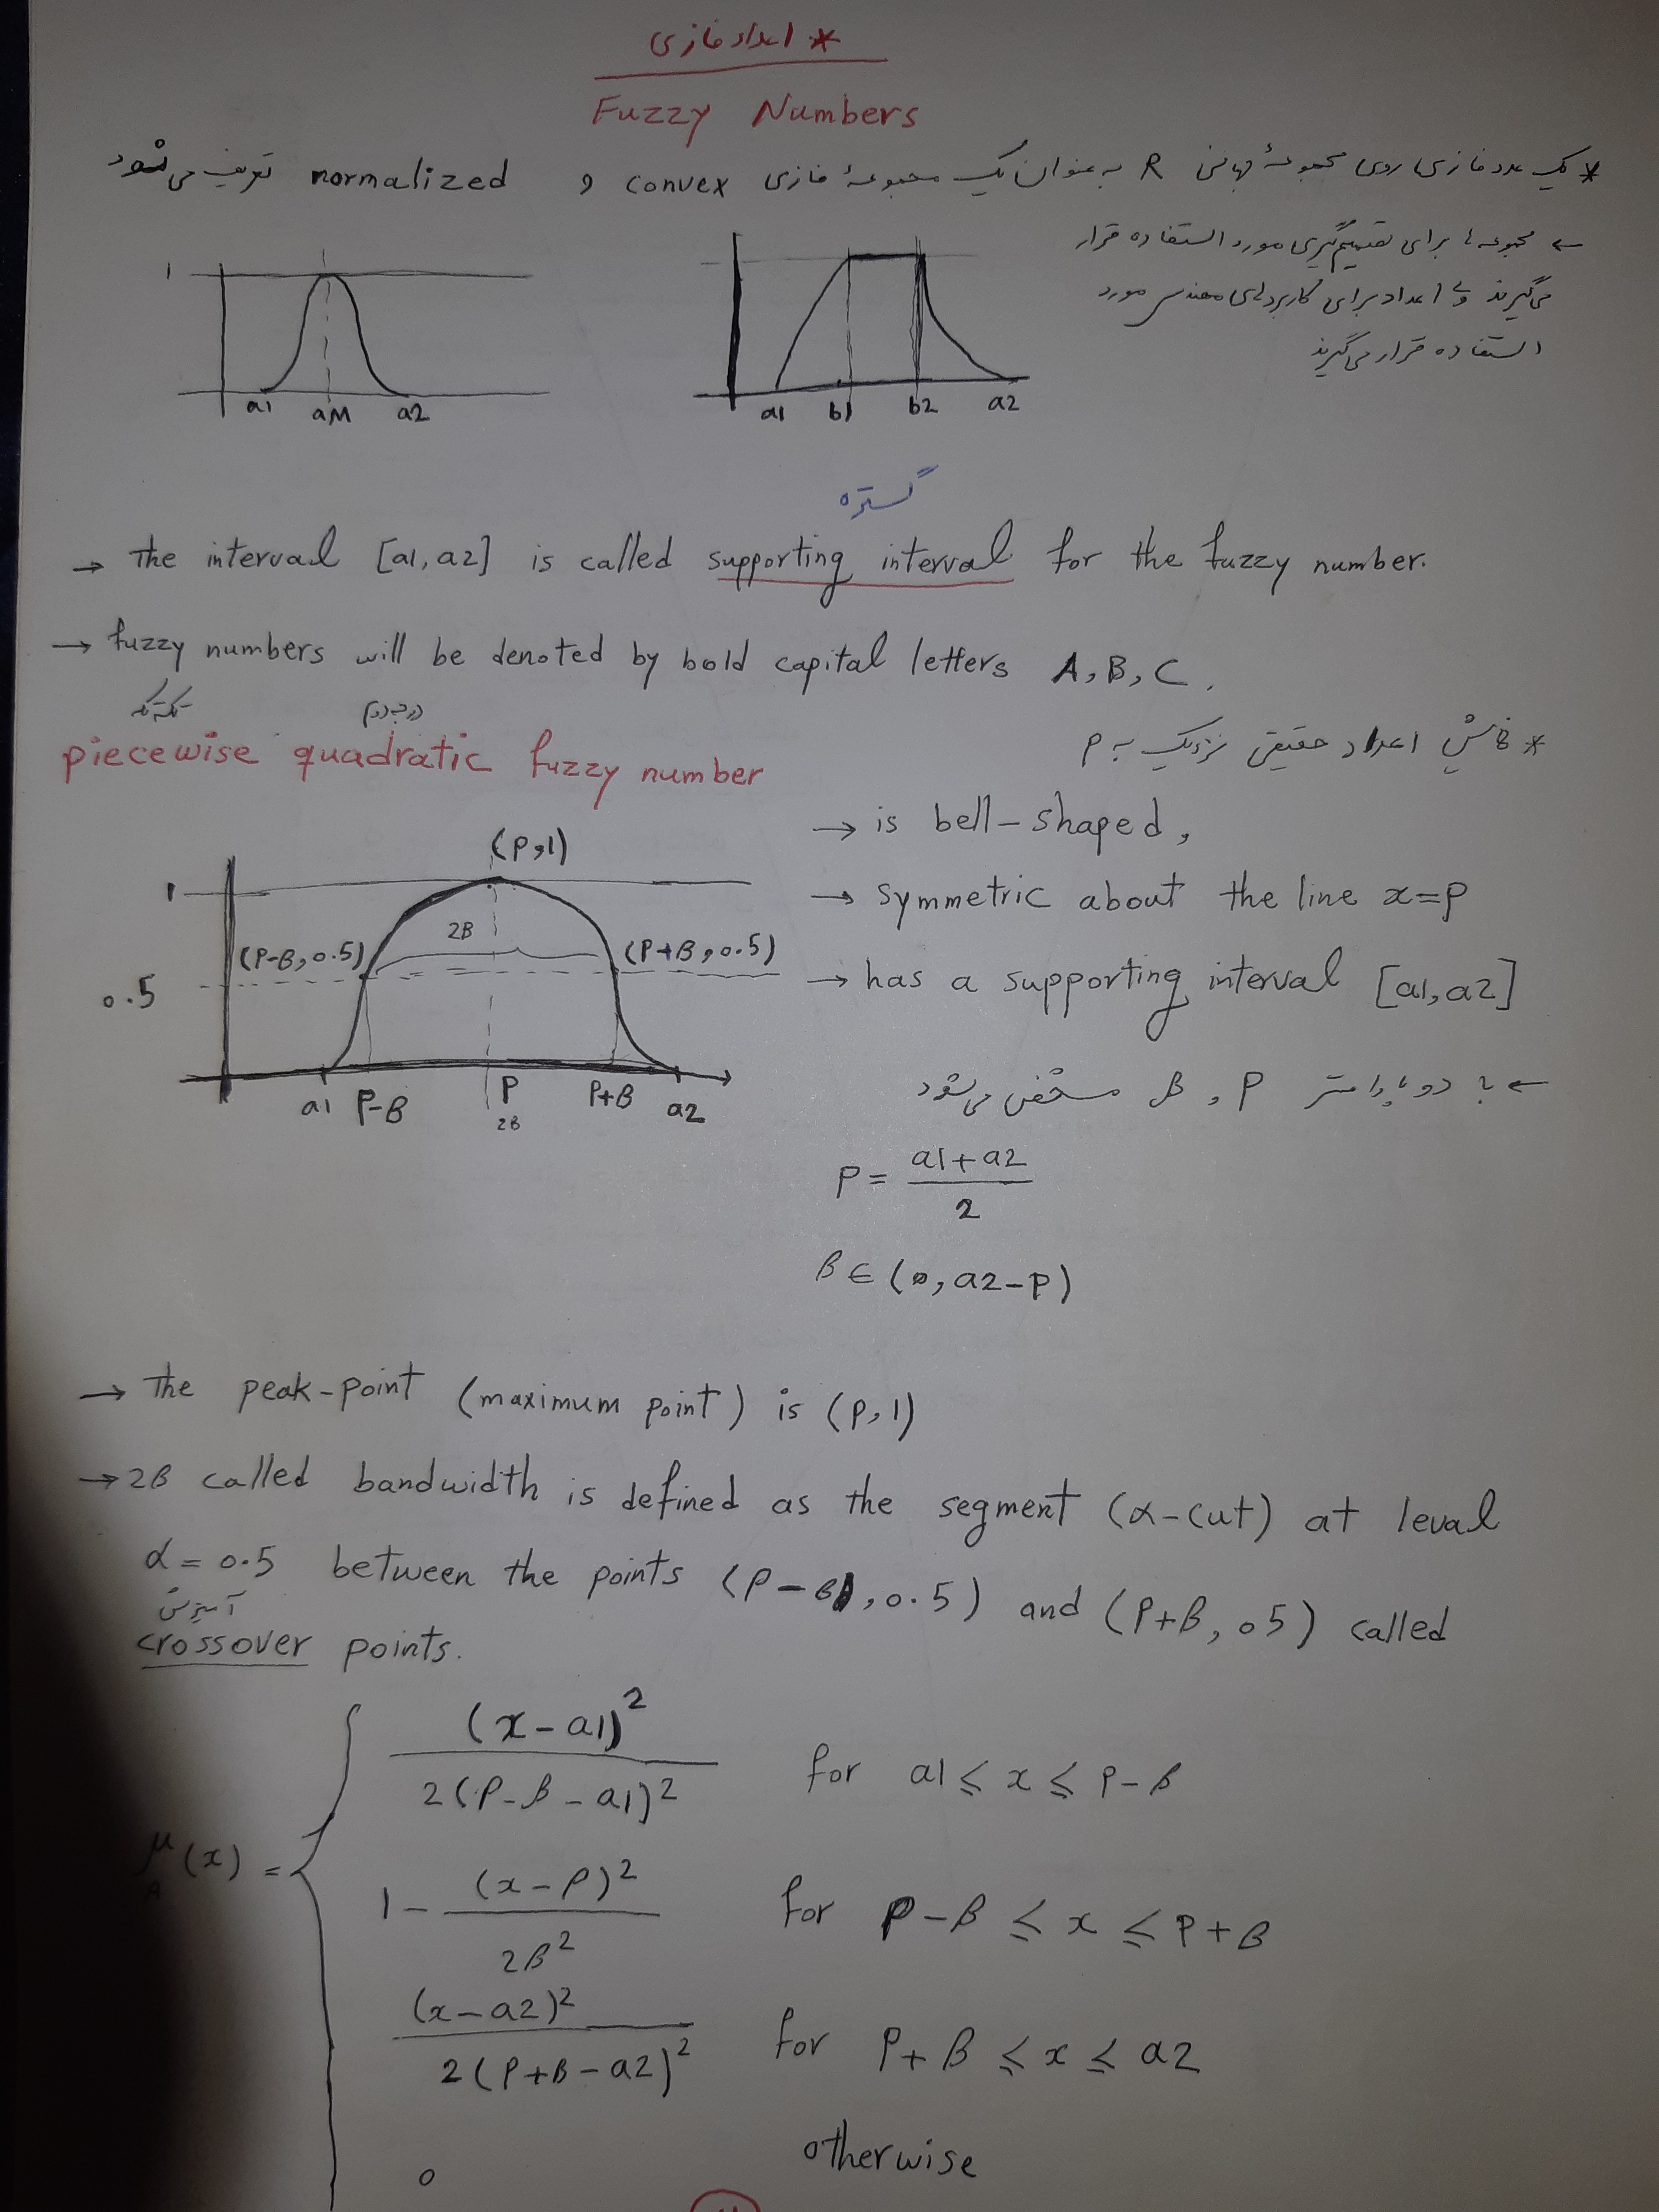 * اعداد فازی
Fuzzy Numbers
* یک عدد فازی روی مجموعهٔ جهانی R به عنوان یک مجموعهٔ فازی convex و normalized تعریف می‌شود
← مجموعه‌ها برای تصمیم‌گیری مورد استفاده قرار
می‌گیرند ولی اعداد برای کاربردهای مهندسی مورد
استفاده قرار می‌گیرند
1
a1 aM a2
a1 b1 b2 a2
گستره
→ The interval [a1, a2] is called supporting interval for the fuzzy number.
→ fuzzy numbers will be denoted by bold capital letters A, B, C.
تکه تکه درجه دوم
piecewise quadratic fuzzy number
* نمایش اعداد حقیقی نزدیک به p
→ is bell-shaped,
→ symmetric about the line x=p
→ has a supporting interval [a1, a2]
(P,1)
1
2β
(P-β, 0.5) (P+β, 0.5)
0.5
a1 P-β P P+β a2
2β
← با دو پارامتر P و β مشخص می‌شود
P = (a1+a2)/2
β ∈ (0, a2-p)
→ The peak-point (maximum point) is (p,1)
→ 2β called bandwidth is defined as the segment (α-cut) at leval
α = 0.5 between the points (P-β, 0.5) and (P+β, 05) called
آمیزش
crossover points.
μA(x) = {
(x-a1)² / 2(P-β-a1)² for a1 ≤ x ≤ P-β
1 - (x-P)² / 2β² for P-β ≤ x ≤ P+β
(x-a2)² / 2(P+β-a2)² for P+β ≤ x ≤ a2
0 otherwise